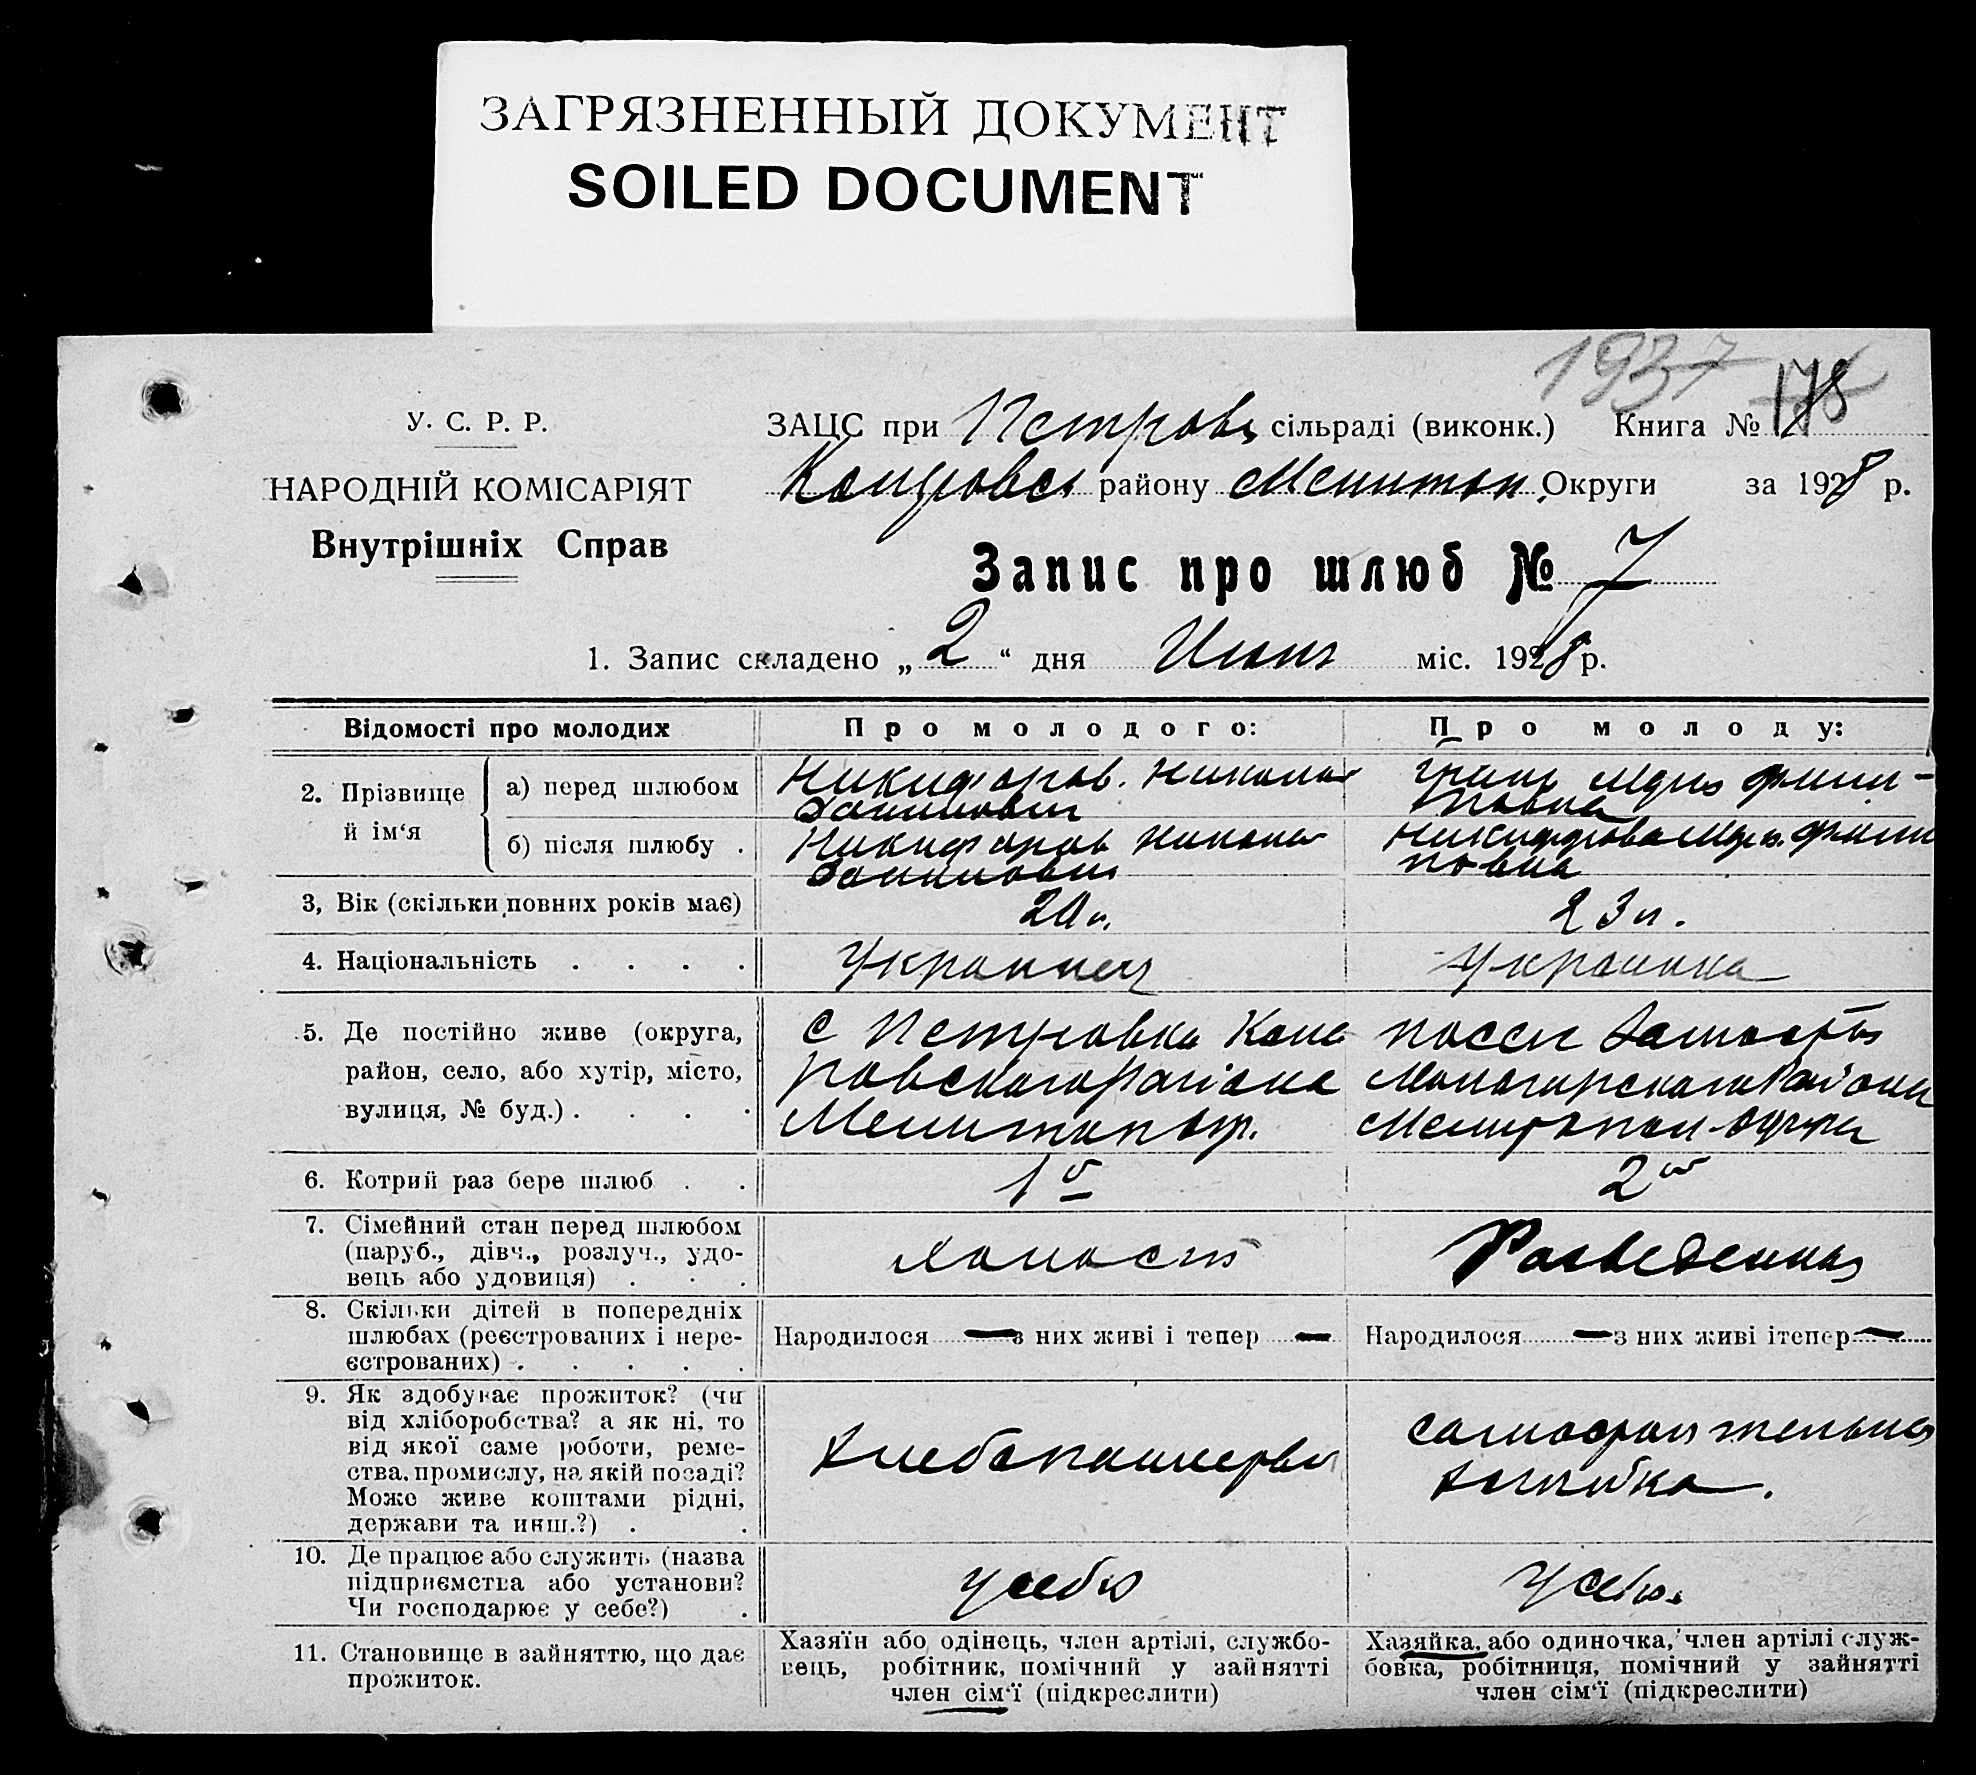 ЗАГРЯЗНЕННЫЙ ДОКУМЕНТ
SOILED DOCUMENT
1937
У. С. Р. Р.
НАРОДНІЙ КОМІСАРІЯТ
Внутрішніх Справ
ЗАЦС при Петров сільраді (виконк.) Книга №
району Мелитоп. Округи за 1928 р.
Запис про шлюб № 7
1. Запис складено „ 2 “ дня Июня міс. 1928 р.
Відомості про молодих Про молодого: Про молоду:
2. Прізвище й ім‘я
а) перед шлюбом Никифоров Николай Филип-
повна
б) після шлюбу . Никифоров Николай Никифорова Филип
повна
3, Вік (скільки повних років має) 20 л. 23 л.
4. Національність . . . . Украинец Украинка
5. Де постійно живе (округа,
район, село, або хутір, місто,
вулиця, № буд.) . . . .
с Петровка
района района
Мелитоп окр. Мелитопол округа
6. Котрий раз бере шлюб . . 1й 2й
7. Сімейний стан перед шлюбом
(паруб., дівч., розлуч., удо-
вець або удовиця) . . .
холост Разведенная
8. Скільки дітей в попередніх
шлюбах (реєстрованих і нере-
єстрованих) . . . . .
Народилося — з них живі і тепер — Народилося — з них живі ітепер —
9. Як здобуває прожиток? (чи
від хліборобства? а як ні, то
від якої саме роботи, реме-
ства, промислу, на якій посаді?
Може живе коштами рідні,
держави та инш.?) . .
Хлебопашество самостоятельная
хозяйка.
10. Де працює або служить (назва
підприємства або установи?
Чи господарює у себе?) .
у себя у себя.
11. Становище в зайняттю, що дає
прожиток.
Хазяїн або одінець, член артілі, службо-
вець, робітник, помічний у зайнятті
член сім‘ї (підкреслити)
Хазяйка, або одиночка, член артілі служ-
бовка, робітниця, помічний у зайнятті
член сім‘ї (підкреслити)